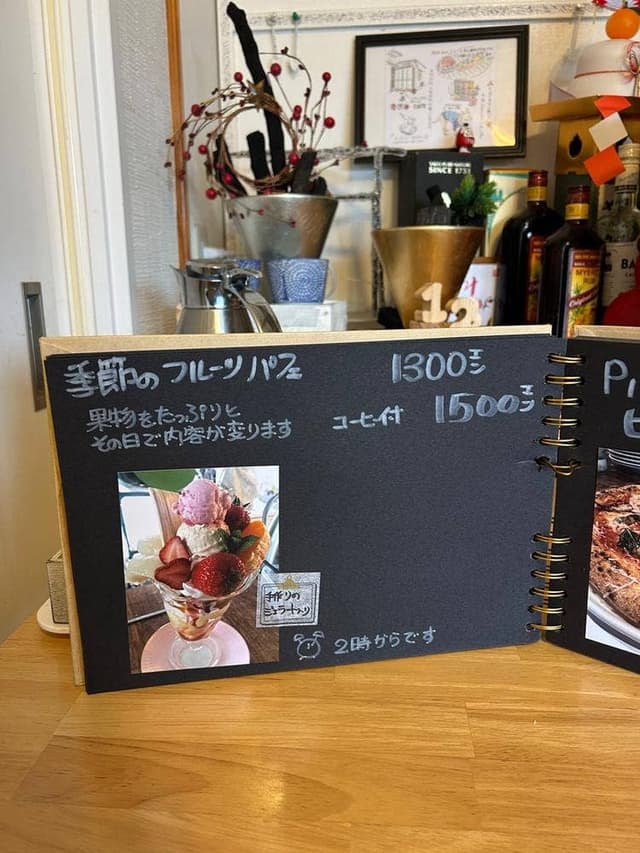 季節のフルーツパフェ 1300エン
果物をたっぷりと
その日で内容が変ります
コーヒー付 1500エン
手作りの
ジェラート入り
2時からです
SINCE 1731
12